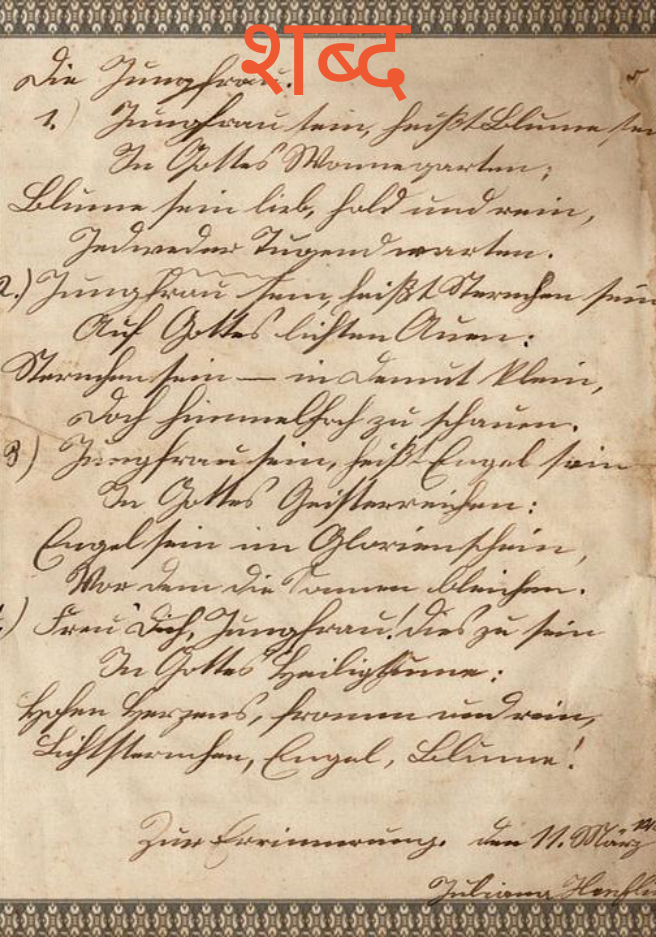 शब्द
Die Jungfrau.
1.) Jungfrau sein, heißt Blume sein
In Gottes Wonnegarten;
Blume sein lieb, hold und rein,
Jedweder Tugend warten.
2.) Jungfrau sein, heißt Sternchen sein
Auf Gottes lichten Auen:
Sternchen sein — in Demut klein,
Doch himmelhoch zu schauen.
3) Jungfrau sein, heißt Engel sein
In Gottes Geisterreichen:
Engel sein im Glorienschein,
Vor dem die Sonnen bleichen.
.) Freu' Dich, Jungfrau! dies zu sein
In Gottes Heiligthume:
Hohen Herzens, fromm und rein,
Lichtsternchen, Engel, Blume!
Zur Errinnerung. den 11. März
Juliana